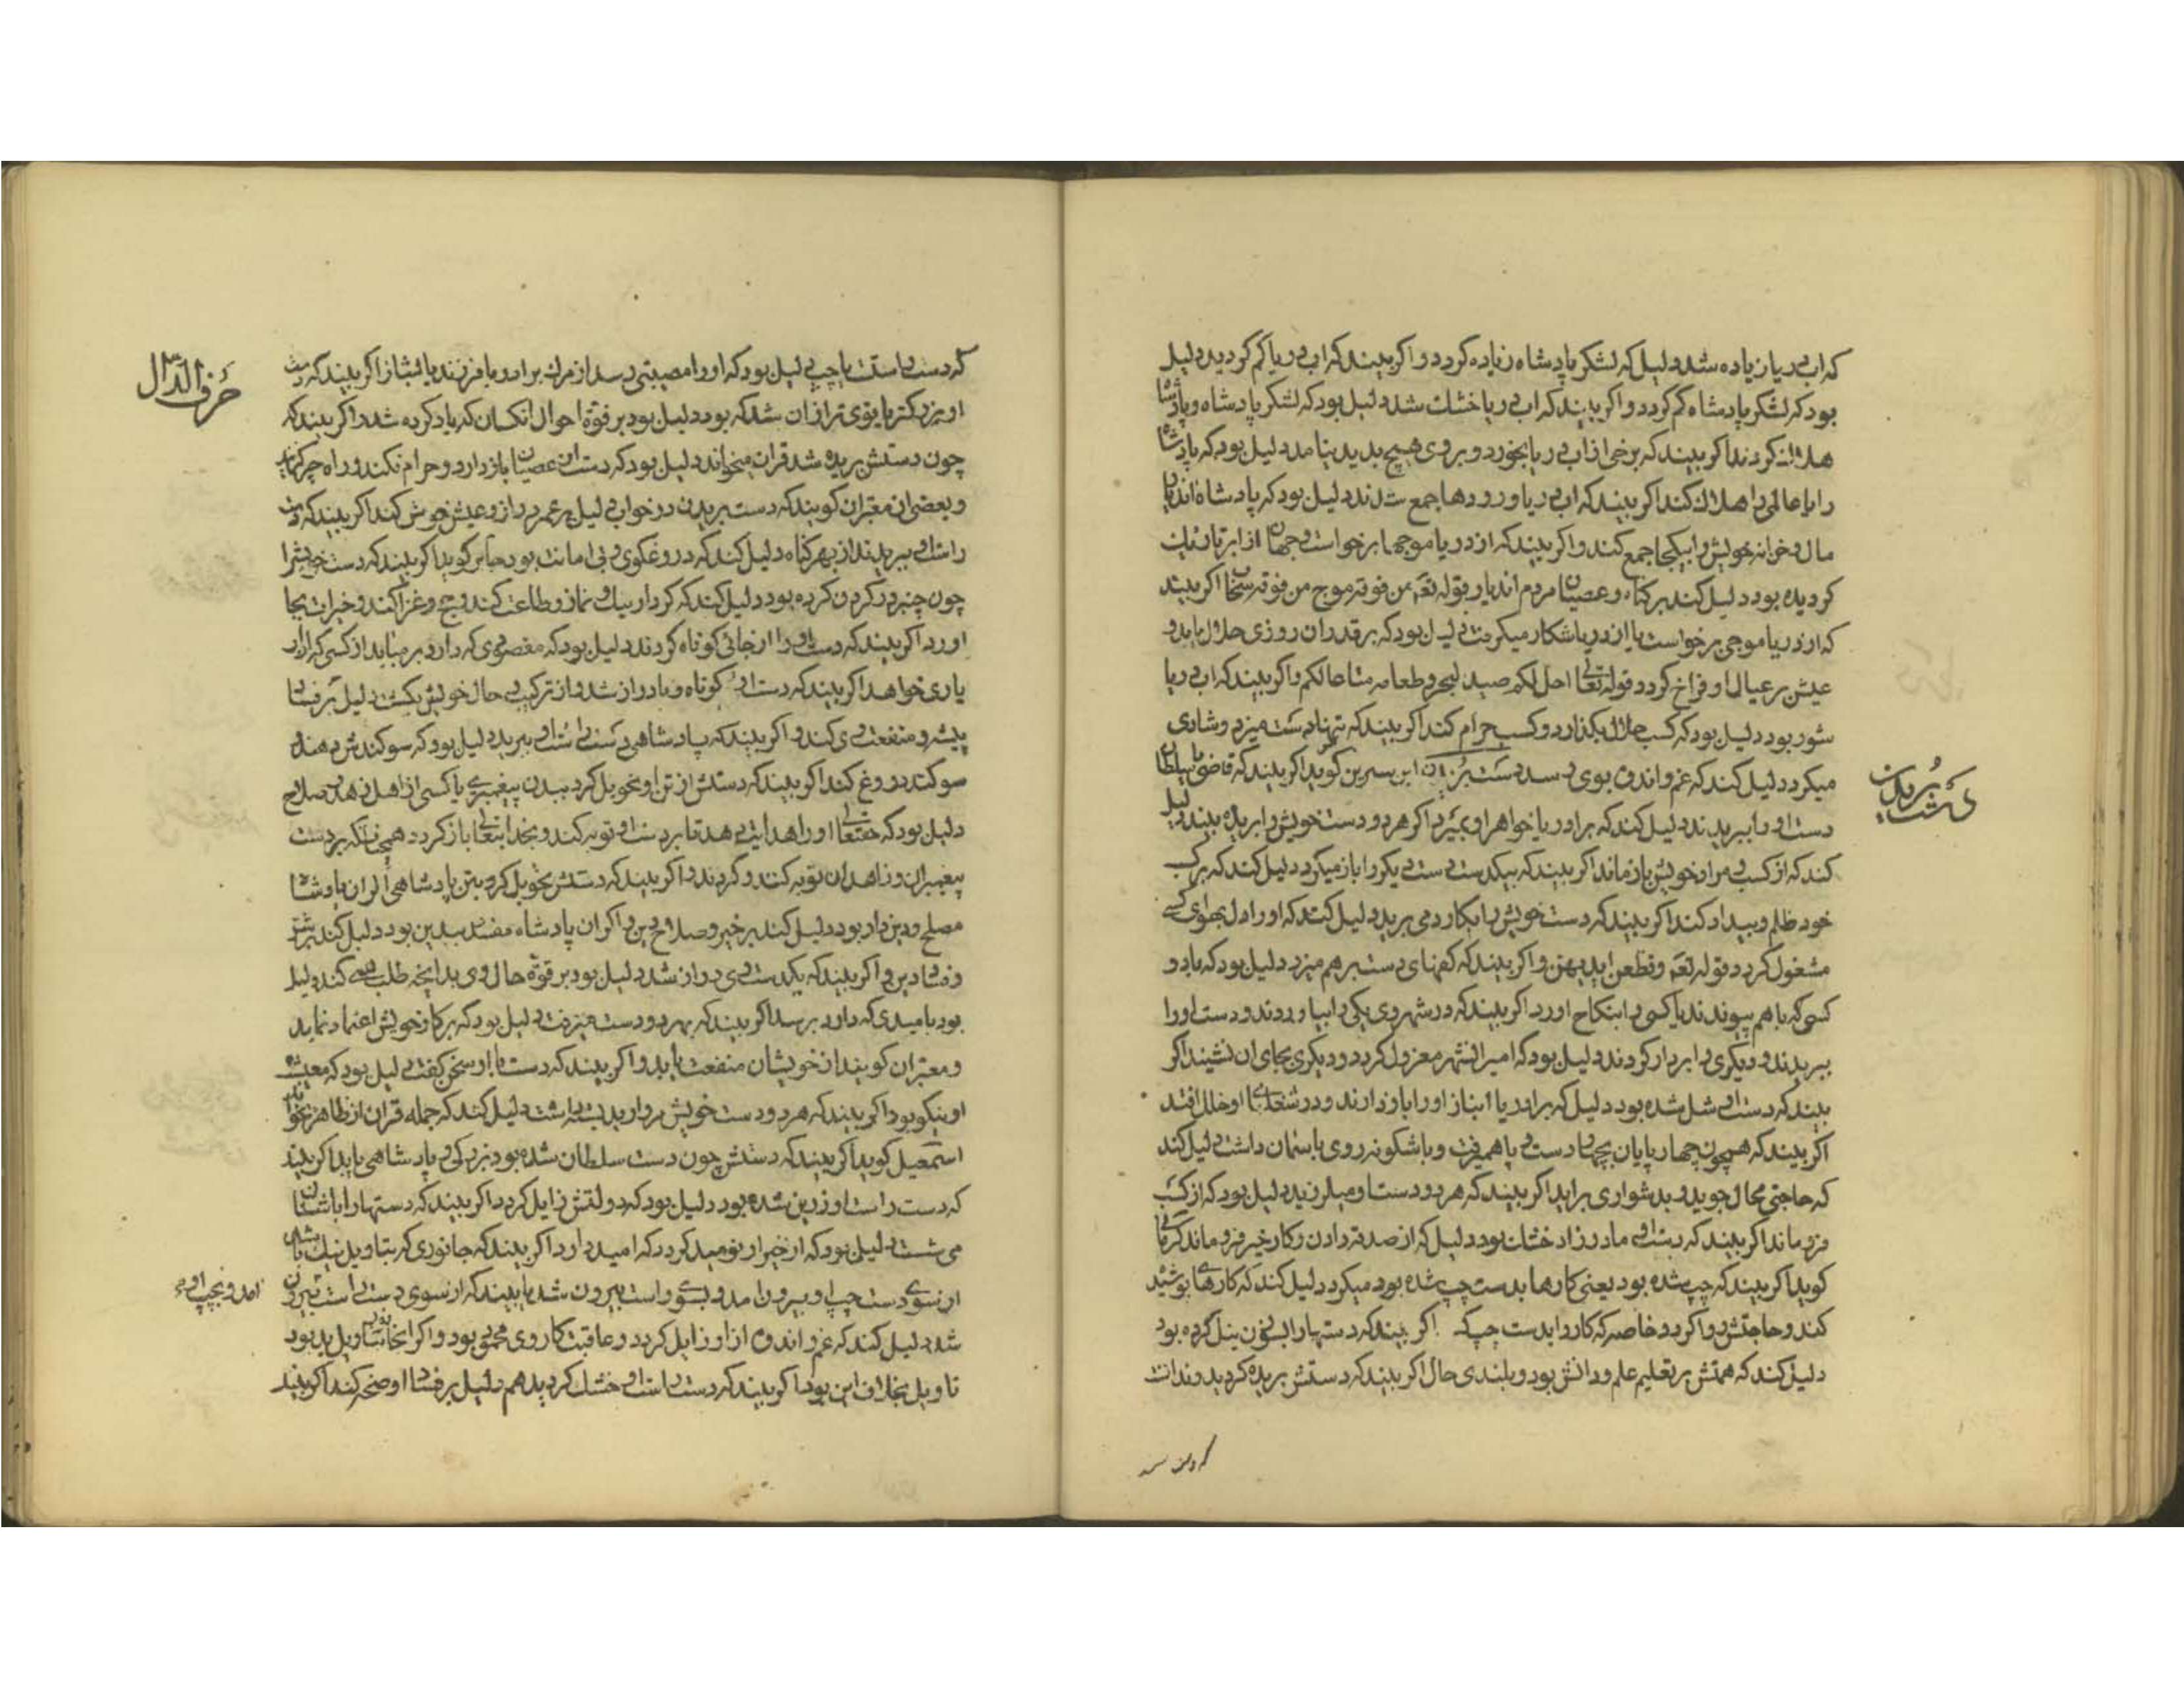 که اب دریا زیاده شد دلیل که لشکر پادشاه زیاده کردد و اکر بیند که اب دریا کم کردید دلیل
بود که لشکر پادشاه کم کردد و اکر بیند که اب دریا خشک شد دلیل بود که لشکر پادشاه و پادشاه
هلاک کردند اکر بیند که برخی از اب دریا بخورد و بر وی هیچ بدید نیامد دلیل بود که پادشاه
را با عالمی هلاک کند اکر بیند که اب دریا و رودها جمع شدند دلیل بود که پادشاه اندیار
مال و خزانه خویش را بیکجا جمع کند و اکر بیند که از دریا موجها برخواست و جهان از ابر تاریک
کردیده بود دلیل کند بر کناه و عصیان مردم اندیار قوله تعم من فوقه موج من فوقه سحاب اکر بیند
که از دریا موجی برخواست یا از دریا شکار میکرفت دلیل بود که بر قدر ان روزی حلال یابد و
عیش بر عیال او فراخ کردد قوله تعالی احل لکم صید البحر و طعامه متاعا لکم و اکر بیند که اب دریا
شور بود دلیل بود که کسب حلال بکذارد و کسب حرام کند اکر بیند که تنها دست میزد و شادی
میکرد دلیل کند که غم و اندوه بوی رسد دست بریدن ابن سیرین کوید اکر بیند که قاضی یا سلطان
دست او را ببریدند دلیل کند که برادر یا خواهر او بمیرد اکر هر دو دست خویش را بریده بیند دلیل
کند که از کسب و مراد خویش باز ماند اکر بیند که بیکدست دست دیکر را باز میکرد دلیل کند که بر کسب
خود ظلم و بیداد کند اکر بیند که دست خویش را بکارد می برید دلیل کند که او را دل بهوای کسی
مشغول کردد قوله تعم و قطعن ایدیهن و اکر بیند که کفهای دست بر هم میزد دلیل بود که با دو
کسی که باهم پیوندند یا کسی را بنکاح اورد اکر بیند که در شهر وی یکی را بیاوردند و دست او را
ببریدند و دیکری را بردار کردند دلیل بود که امیر انشهر معزول کردد و دیکری بجای ان نشیند اکر
بیند که دست او شل شده بود دلیل که برادر یا انباز او را باز دارند و در شغلهای او خلل افتد
اکر بیند که همچون چهار پایان بچهار دست و پا همیرفت و باشکونه روی باسمان داشت دلیل کند
که حاجتی محال جوید و بدشواری براید اکر بیند که هر دو دست او میلرزید دلیل بود که از کسب
فرو ماند اکر بیند که دست وی مادرزاد خشک بود دلیل که از صدقه دادن و کار خیر فرو ماند کرمانی
کوید اکر بیند که چپ شده بود یعنی کارها بدست چپ شده بود میکرد دلیل کند که کارهای پوشیده
کند و حاجتش روا کردد خاصه که کار را بدست چپ کند اکر بیند که دستها را بسوزن نیل کرده بود
دلیل کند که همتش بر تعلیم علم و دانش بود و بلندی حال اکر بیند که دستش بریده کردید و ندانست
دست بریدن
که دست راست یا چپ دلیل بود که او را مصیبتی رسد از مرک برادر یا فرزند یا انباز اکر بیند که دست
او بزرکتر یا بقوی تر از ان شد که بود دلیل بود بر قوة احوال انکسان که یاد کرده شد و اکر بیند که
چون دستش بریده شد قران میخواند دلیل بود که دست از عصیان باز دارد و حرام نکند و راه خیر نماید
و بعضی از معبران کویند که دست بریدن در خواب دلیل بر عمر دراز و عیش خوش کند اکر بیند که دست
راست او ببریدند از بهر کناه دلیل کند که دروغکوی و بی امانت بود جابر کوید اکر بیند که دست خویش را
چون چنبر در کردن کرده بود دلیل کند که کردار نیک و نماز و طاعت کند و حج و غزا کند و خیرات بجا
اورد اکر بیند که دست او را از جائی کوتاه کردند دلیل بود که مقصودی که دارد بر نیاید از کسی که از او
یاری خواهد اکر بیند که دست او کوتاه و یا دراز شد و از ترکیب و حال خویش بکشت دلیل بر فساد
پیشه و منفعت وی کند و اکر بیند که پادشاهی دست راست او ببرید دلیل بود که سوکندش دهند و
سوکند دروغ کند اکر بیند که دستش از تن او تحویل کرد ببدن پیغمبری یا کسی از اهل زهد و صلاح
دلیل بود که حقتعالی او را هدایت دهد تا بر دست او توبه کند و بخدایتعالی باز کردد همچنانکه بر دست
پیغمبران و زاهدان توبه کنند و کردند و اکر بیند که دستش تحویل کرد بتن پادشاهی اکر ان پادشاه
مصلح و دین دار بود دلیل کند بر خیر و صلاح دین و اکر ان پادشاه مفسد بیدین بود دلیل کند بر شر
و فساد دین و اکر بیند که یکدست وی دراز شد دلیل بود بر قوة حال وی بدانچه طلب می کند دلیل
بود بامیدی که دارد برسد اکر بیند که بهر دو دست میرفت دلیل بود که بر کار خویش اعتماد نماید
و معبران کویند از خویشان منفعت یابد و اکر بیند که دست با او سخن کفت دلیل بود که معیشت
او نیکو بود اکر بیند که هر دو دست خویش مروارید بسته داشت دلیل کند که جمله قران از ظاهر بخواند
اسمعیل کوید اکر بیند که دستش چون دست سلطان شده بود بزرکی و پادشاهی یابد اکر بیند
که دست راست او زرین شده بود دلیل بود که دولتش زایل کردد اکر بیند که دستها را باشنان
می شست دلیل بود که از خیر او نومید کردد که امید دارد اکر بیند که جانوری که بتاویل نیک باشد
از سوی دست چپ او بیرون امد و بسوی راست بیرون شد یا بیند که از سوی دست راست بیرون
شد دلیل کند که غم و اندوه از او زایل کردد و عاقبت کار وی محمود بود و اکر انجانور بتاویل بد بود
تاویل بخلاف این بود اکر بیند که دست راست او خشک کردید هم دلیل بر فساد او صحه کند اکر بیند
حرف الدال
امد و بچپ او